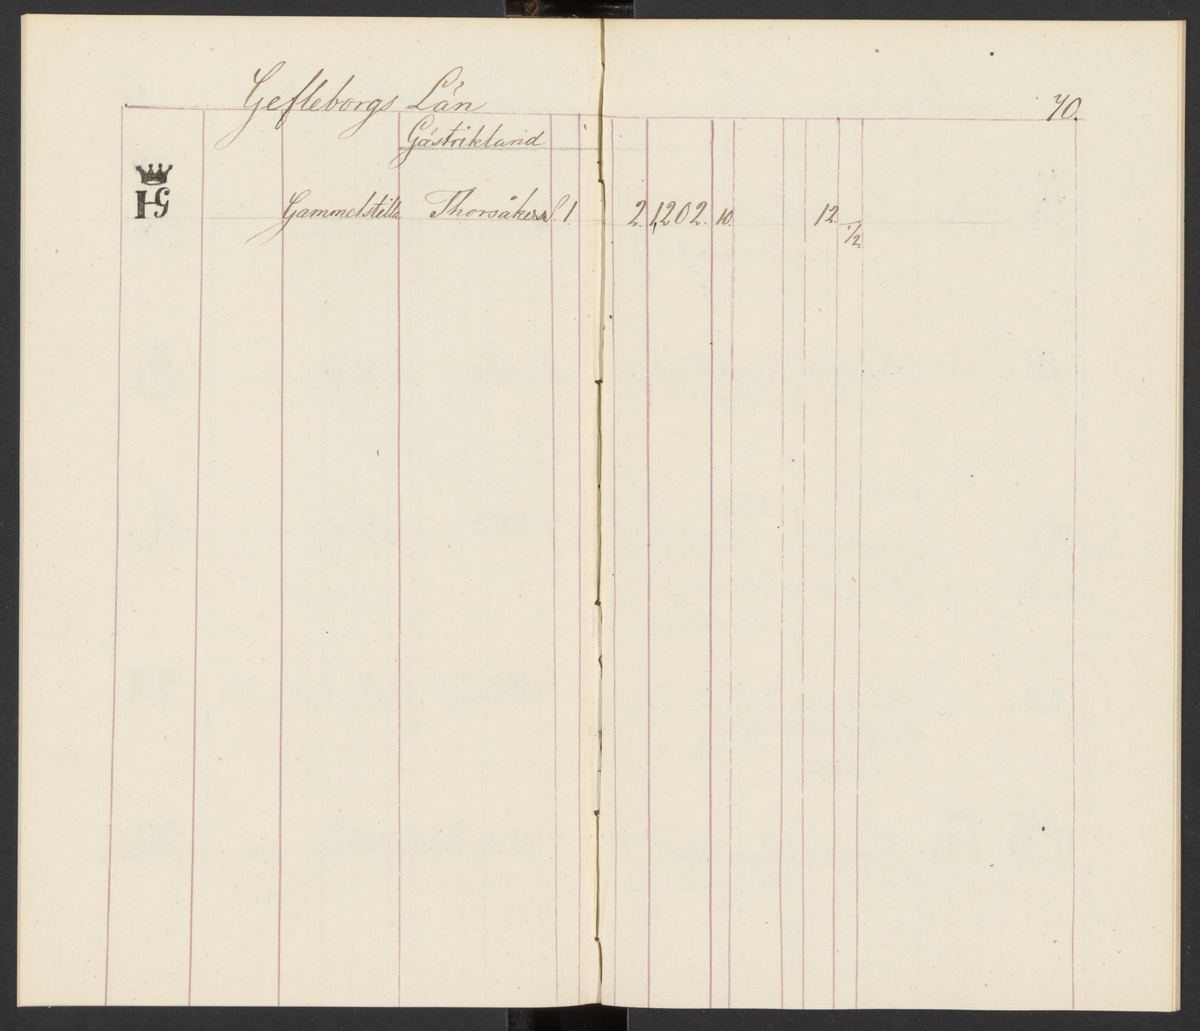 Gefleborgs Län
70.
Gästrikland
Gammelstilla Thorsåker 1 2. 1,202. 10. 12 1/2